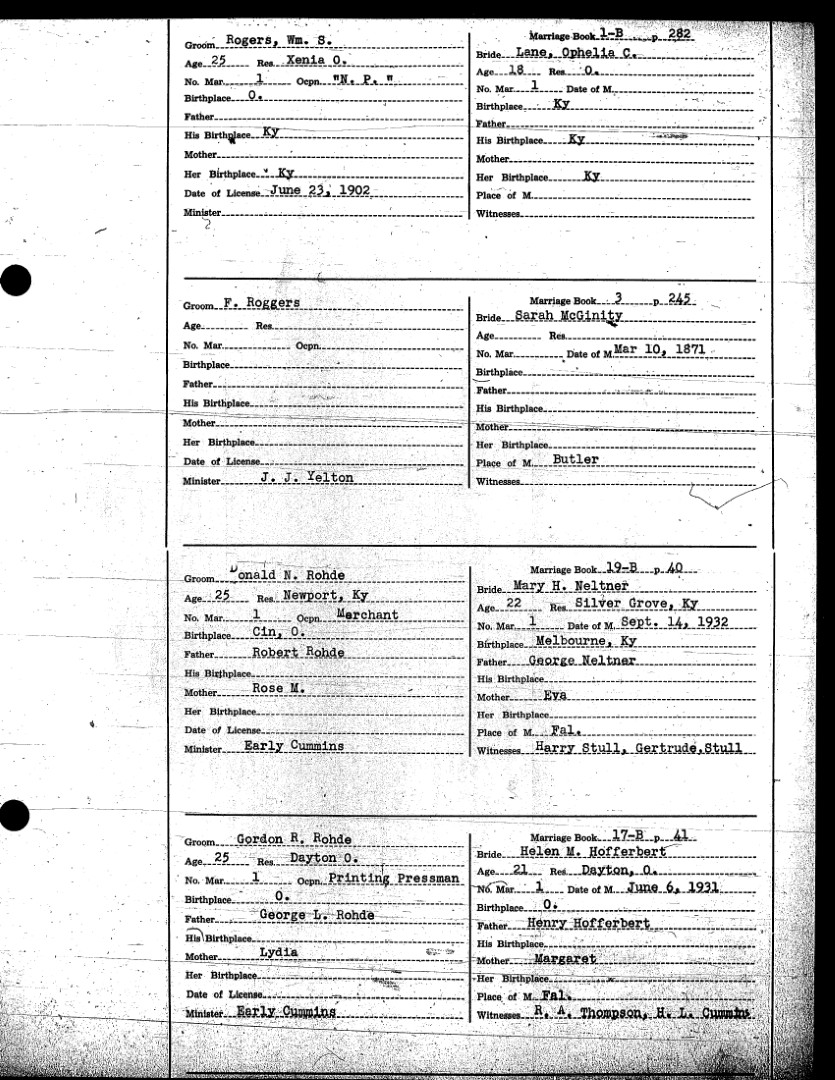 Groom Rogers, Wm. S.
Age 25 Res Xenia O.
No. Mar. 1 Ocpn. "N. P. "
Birthplace O.
Father
His Birthplace Ky
Mother
Her Birthplace Ky
Date of License June 23, 1902
Minister
Marriage Book 1-B p. 282
Bride Lane, Ophelia C.
Age 18 Res O.
No. Mar 1 Date of M.
Birthplace Ky
Father
His Birthplace Ky
Mother
Her Birthplace Ky
Place of M.
Witnesses
Groom F. Roggers
Age Res.
No. Mar. Ocpn.
Birthplace
Father
His Birthplace
Mother
Her Birthplace
Date of License
Minister J. J. Yelton
Marriage Book 3 p. 245
Bride Sarah McGinity
Age Res
No. Mar. Date of M. Mar 10, 1871
Birthplace
Father
His Birthplace
Mother
Her Birthplace
Place of M. Butler
Witnesses
Groom Donald N. Rohde
Age 25 Res Newport, Ky
No. Mar. 1 Ocpn. Merchant
Birthplace Cin, O.
Father Robert Rohde
His Birthplace
Mother Rose M.
Her Birthplace
Date of License
Minister Early Cummins
Marriage Book 19-B p. 40
Bride Mary H. Neltner
Age 22 Res Silver Grove, Ky
No. Mar 1 Date of M. Sept. 14, 1932
Birthplace Melbourne, Ky
Father George Neltner
His Birthplace
Mother Eva
Her Birthplace
Place of M. Fal.
Witnesses Harry Stull, Gertrude,Stull
Groom Gordon R. Rohde
Age 25 Res Dayton O.
No. Mar. 1 Ocpn. Printing Pressman
Birthplace O.
Father George L. Rohde
His Birthplace
Mother Lydia
Her Birthplace
Date of License
Minister Early Cummins
Marriage Book 17-B p. 41
Bride Helen M. Hofferbert
Age 21 Res Dayton, O.
No. Mar 1 Date of M. June 6, 1931
Birthplace O.
Father Henry Hofferbert
His Birthplace
Mother Margaret
Her Birthplace
Place of M. Fal.
Witnesses R. A. Thompson, H. L. Cummins